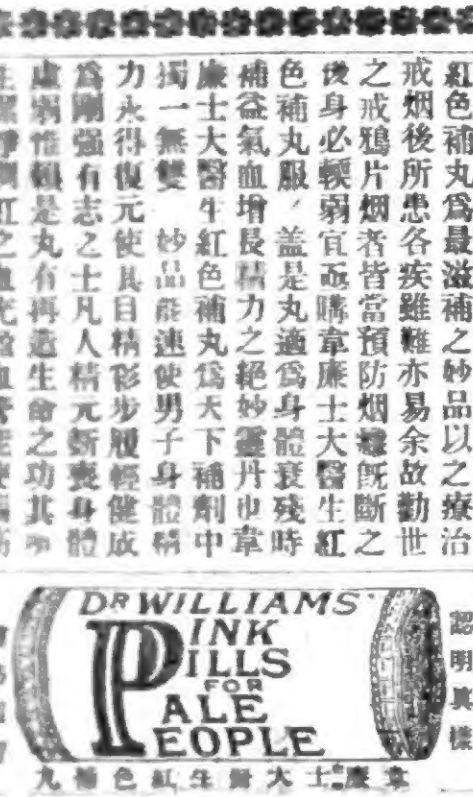 紅色補丸爲最滋補之妙品以之療治
戒烟後所患各疾雖難亦易余故勸世
之戒鴉片烟者皆當預防烟癮旣斷之
後身必輭弱宜亟購韋廉士大醫生紅
色補丸服 盖是丸適爲身體衰殘時
補益氣血增長精力之絕妙靈丹也韋
廉士大醫生紅色補丸爲天下補劑中
獨一無雙 妙品能速使男子身體精
力永得復元使其目精彩步履輕健成
爲剛强有志之士凡人精元斲喪身體
虛弱惟賴是丸有再造生命之功其
紅之血
認明眞樣
DR WILLIAMS'
PINK
PILLS
FOR
PALE
PEOPLE
韋廉士大醫生紅色補丸